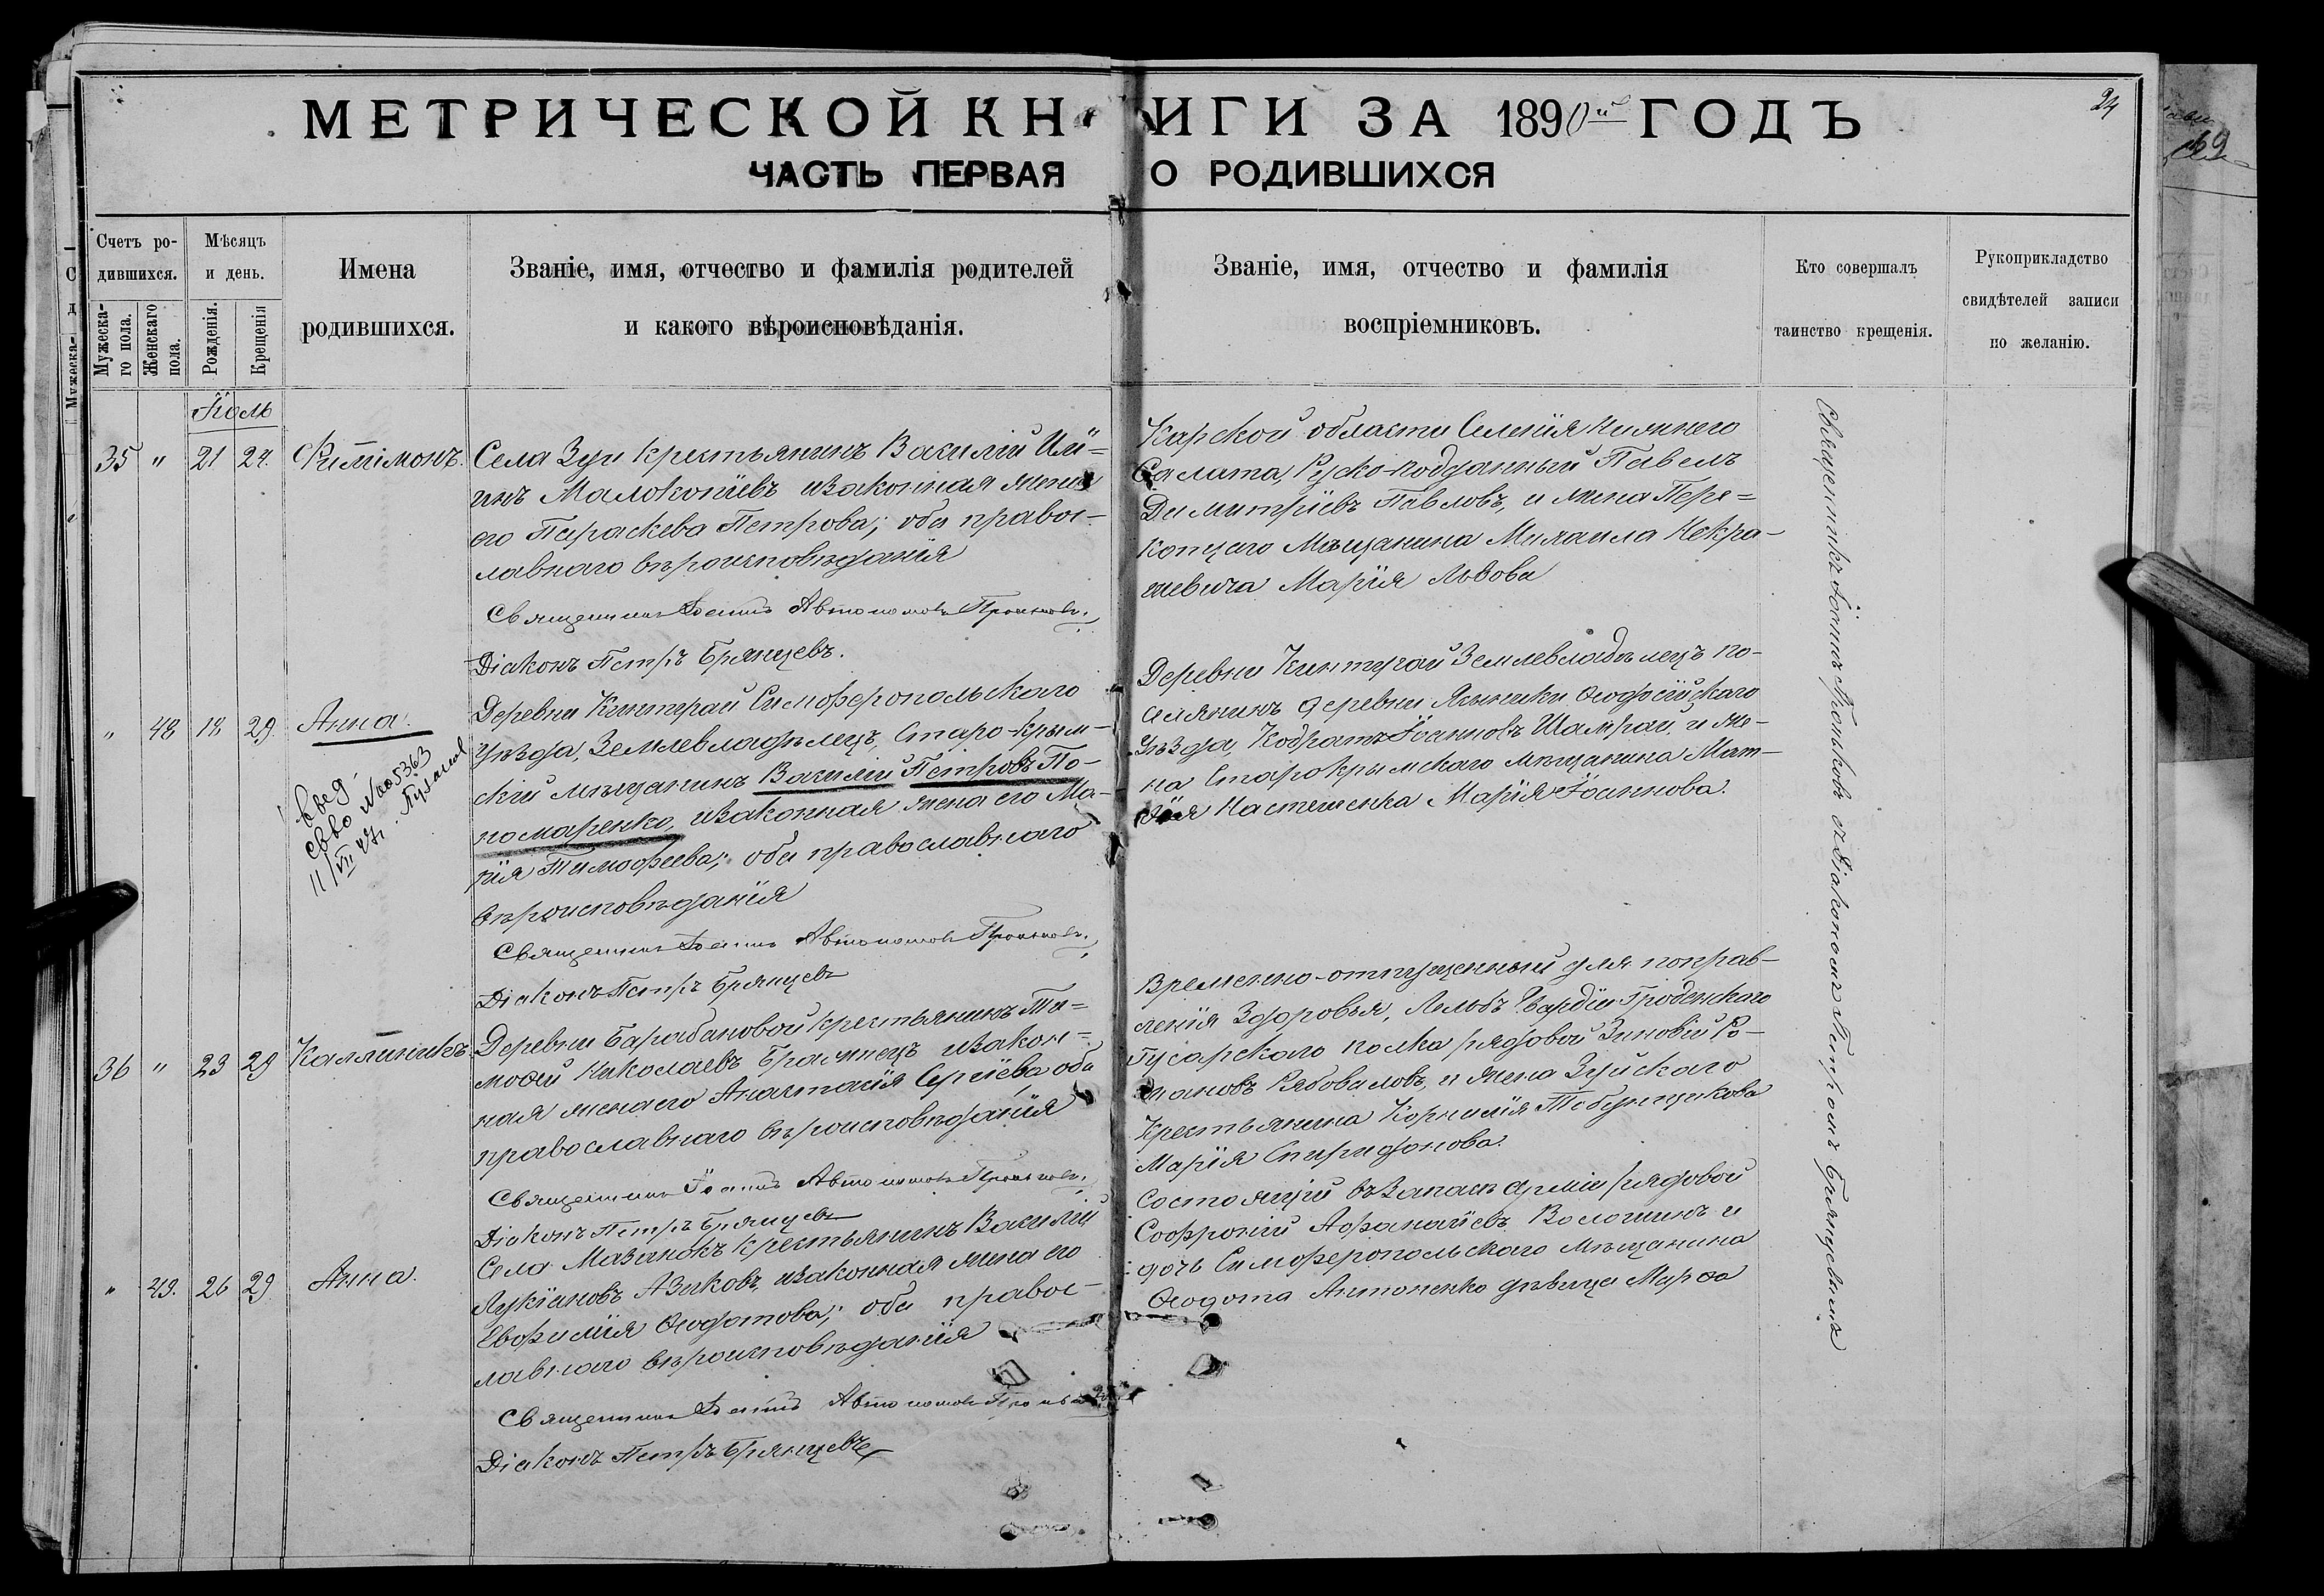 24
МЕТРИЧЕСКОЙ КНИГИ ЗА 1890й ГОДЪ
ЧАСТЬ ПЕРВАЯ О РОДИВШИХСЯ
Счетъ ро-
дившихся.
Мужеска-
го пола.
Женскаго
пола.
Мѣсяцъ
и день.
Рожденія.
Крещенія
Имена
родившихся.
Званіе, имя, отчество и фамилія родителей
и какого вѣроисповѣданія.
Званіе, имя, отчество и фамилія
воспріемниковъ.
Кто совершалъ
таинство крещенія.
Рукоприкладство
свидѣтелей записи
по желанію.
Іюль
35 " 21 24.
Села Зуи крестьянинъ Василій Иль=
инъ изаконная жена
его Параскева Петрова; оба правос-
лавнаго вѣроисповѣданія
Священникъ Іоаннъ Автономовъ Проньковъ.
Діаконъ Петръ Брянцевъ.
Карской области Селенія
Салата, Руско-подданный Павелъ
Димитріевъ Павловъ, и жена Пере=
копцаго Мѣщанина Михаила Некра-
шевича Марія Львова
" 48 18 29. Анна.
Деревни Кинтугай Симферопольскаго
Уѣзда, Землевладѣлецъ, Старо-Крым-
скій мѣщанинъ Василій Петровъ По-
номаренко, изаконная жена его Ма-
рія Тимофеева; оба православнаго
вѣроисповѣданія
Священникъ Іоаннъ Автономовъ Проньковъ.
Діаконъ Петръ Брянцевъ
Деревни Кинтугай Землевладѣлецъ по-
селянинъ деревни Ѳеодосійскаго
Уѣзда, Кодратъ Іоанновъ Шамрай, и же-
на Старокрымскаго мѣщанина Мат-
Настешенка Марія Іоаннова.
св-во № 005363
11/VII 47г.
36 " 23 29 Каллиникъ
Деревни Барабановой крестьянинъ Ти=
мофей Николаевъ изакон=
ная жена его Анастасія Сергѣева оба
православнаго вѣроисповѣданія
Священникъ Іоаннъ Автономовъ Проньковъ.
Діаконъ Петръ Брянцевъ
Временно-отпущенный для поправ-
ленія Здоровья, Лейбъ Гвардіи Гродненскаго
Гусарскаго полка рядовой Зиновій Ро-
мановъ и жена Зуйскаго
Крестьянина Корнилія Табунщикова
Марія Спиридонова.
" 49. 26 29 Анна.
Села Мазанокъ крестьянинъ Василій
Лукіановъ Азиковъ, изаконная жена его
Евфимія Ѳеодотова; оба правос-
лавнаго вѣроисповѣданія
Священникъ Іоаннъ Автономовъ Проньковъ
Діаконъ Петръ Брянцевъ
Состоящій въ Запасѣ арміи рядовой
Софроній Афанасіевъ Волошинъ и
дочь Симферопольскаго Мѣщанина
Ѳеодота Антоненко дѣвица Марѳа
Священникъ Іоаннъ Проньковъ съ Діакономъ Петромъ Брянцевымъ